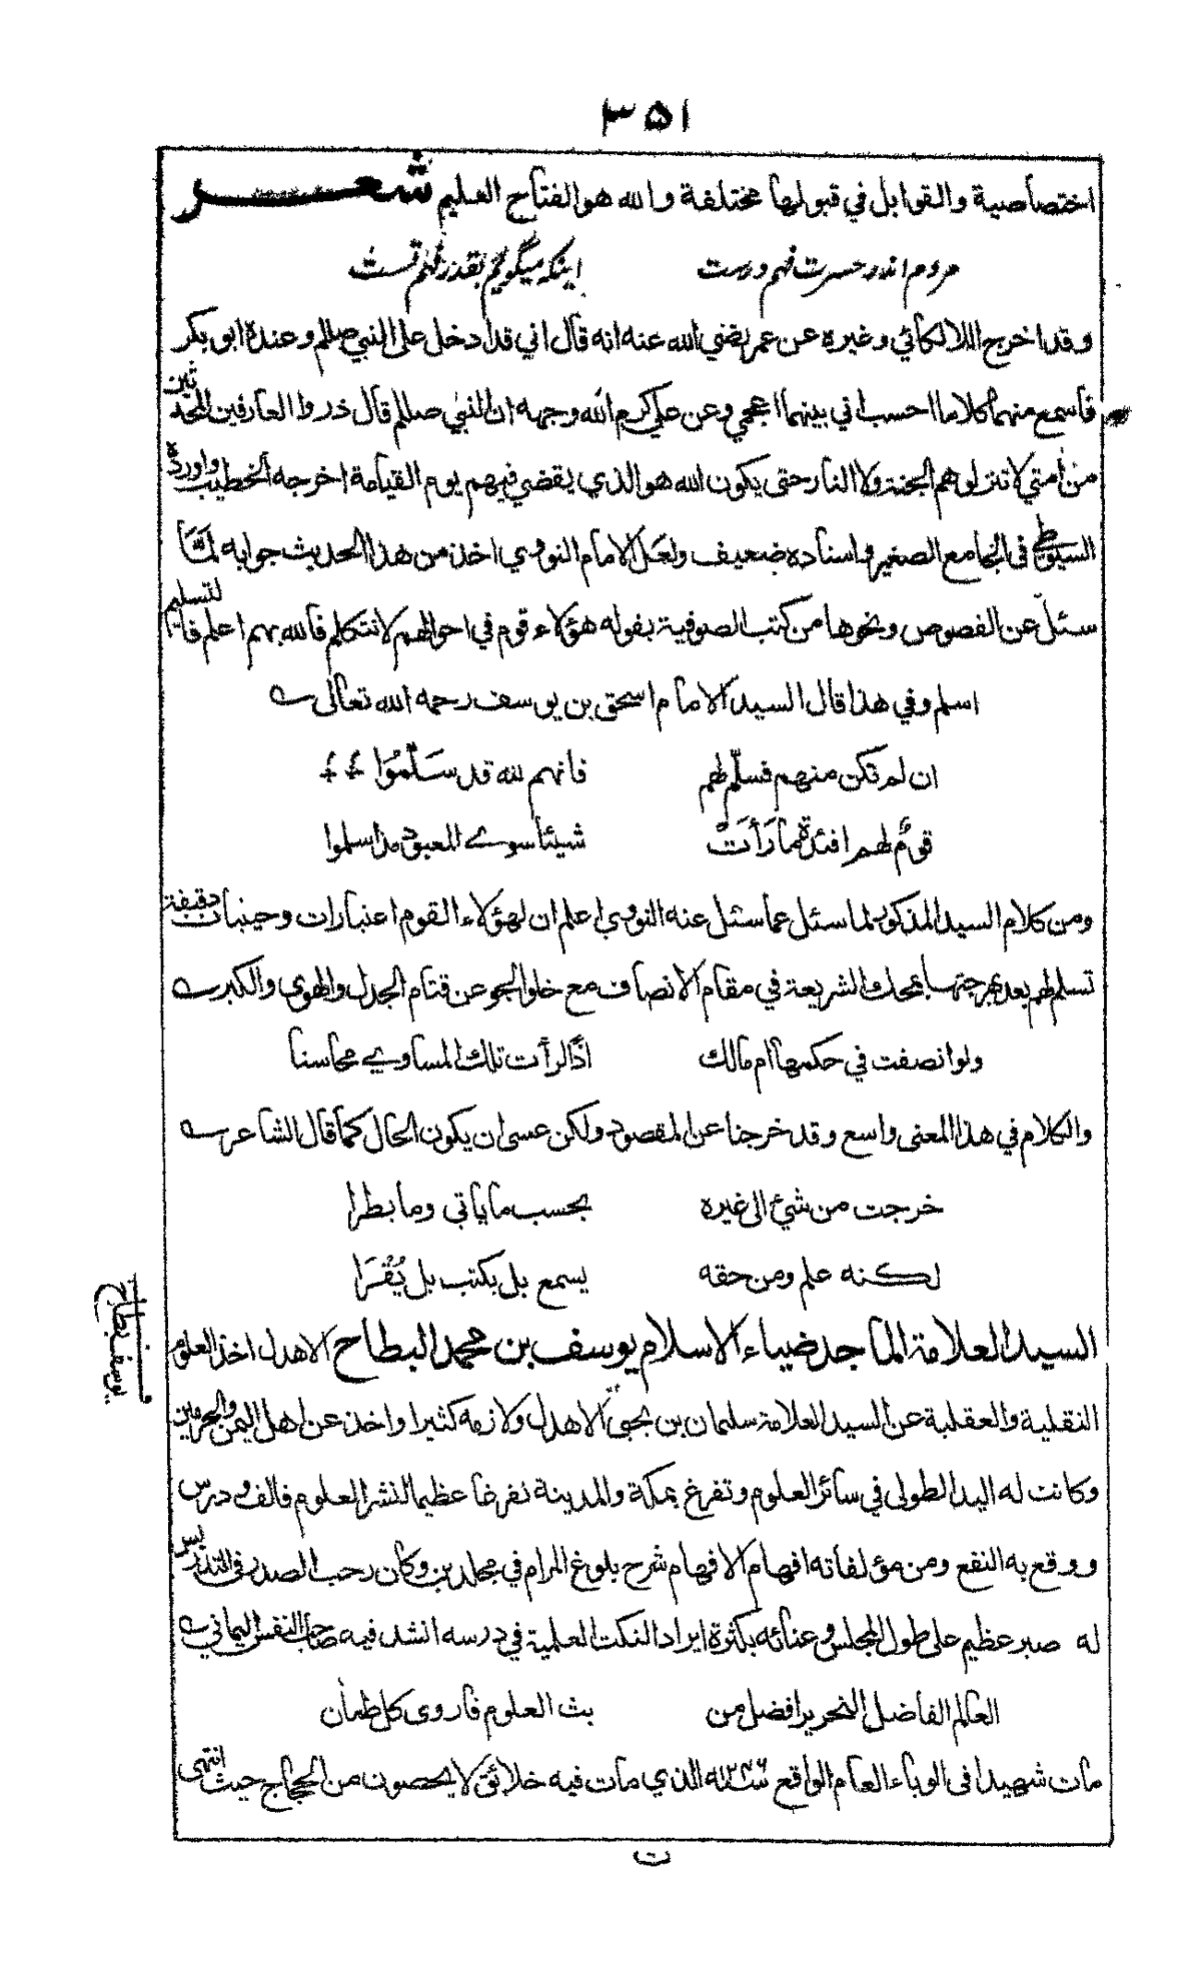 ۳۵۱
اختصاصية والقوابل في قبولها مختلفة والله هو الفتاح العليم شعر
مردم اندر حسرت فهم درست اینکه میگویم بقدر فهم تست
وقد اخرج اللالكائي وغيره عن عمر رضي الله عنه انه قال اني قد ادخل على النبي صللم وعنده ابو بكر
فاسمع منهما كلاما احسب اني بينهما اعجمي وعن علي كرم الله وجهه ان النبي صللم قال ذروا العارفين المحدثين
من أمتي لا تنزلوهم الجنة ولا النار حتى يكون الله هو الذي يقضي فيهم يوم القيامة اخرجه الخطيب واورده
السيوطي في الجامع الصغير واسناده ضعيف ولعل الامام النووي اخذ من هذا الحديث جوابه لمّا
سئل عن الفصوص ونحوها من كتب الصوفية بقوله هؤلاء قوم في احوالهم لا نتكلم فالله بهم اعلم فان التسليم
اسلم وفي هذا قال السيد الامام اسحق بن يوسف رحمه الله تعالى
ان لم تكن منهم فسلّم لهم فانهم لله قد سَلَّمُوا
قومٌ لهم افئدة ما رَأَتْ شيئا سوى المعبود مذ اسلموا
ومن كلام السيد المذكور لما سئل عما سئل عنه النووي اعلم ان لهؤلاء القوم اعتبارات وحيثيات دقيقة
تسلم لهم بعد بمحك الشريعة في مقام الانصاف مع خلو الجو عن قتام الجدل والهوى والكبر
ولو انصفت في حكمها ام مالك اذًا لرأت تلك المساوي محاسنا
والكلام في هذا المعنى واسع وقد خرجنا عن المقصود ولكن عسى ان يكون الحال كما قال الشاعر
خرجت من شيئ الى غيره بحسب ما ياتي وما يطرا
لكنه علم ومن حقه يسمع بل يكتب بل يُقْرَا
السيد العلامة الماجد ضياء الاسلام يوسف بن محمد البطاح الاهدل اخذ العلوم
يوسف بطاح
النقلية والعقلية عن السيد العلامة سليمان بن يحيى الاهدل ولازمه كثيرا واخذ عن اهل اليمن والحرمين
وكانت له اليد الطولى في سائر العلوم وتفرغ بمكة والمدينة تفرغا عظيما لنشر العلوم فالف ودرس
ووقع به النفع ومن مؤلفاته افهام الافهام شرح بلوغ المرام في مجلدين وكان رحب الصدر في التدريس
له صبر عظيم على طول المجلس وعنائه بكثرة ايراد النكت العلمية في درسه انشد فيه صاحب النفس اليماني
العالم الفاضل النحرير افضل من بث العلوم فاروى كل ظمأن
مات شهيدا في الوباء العام الواقع سنة ۱۲۴۶ الذي مات فيه خلائق لا يحصون من الحجاج حيث انتهى
ت